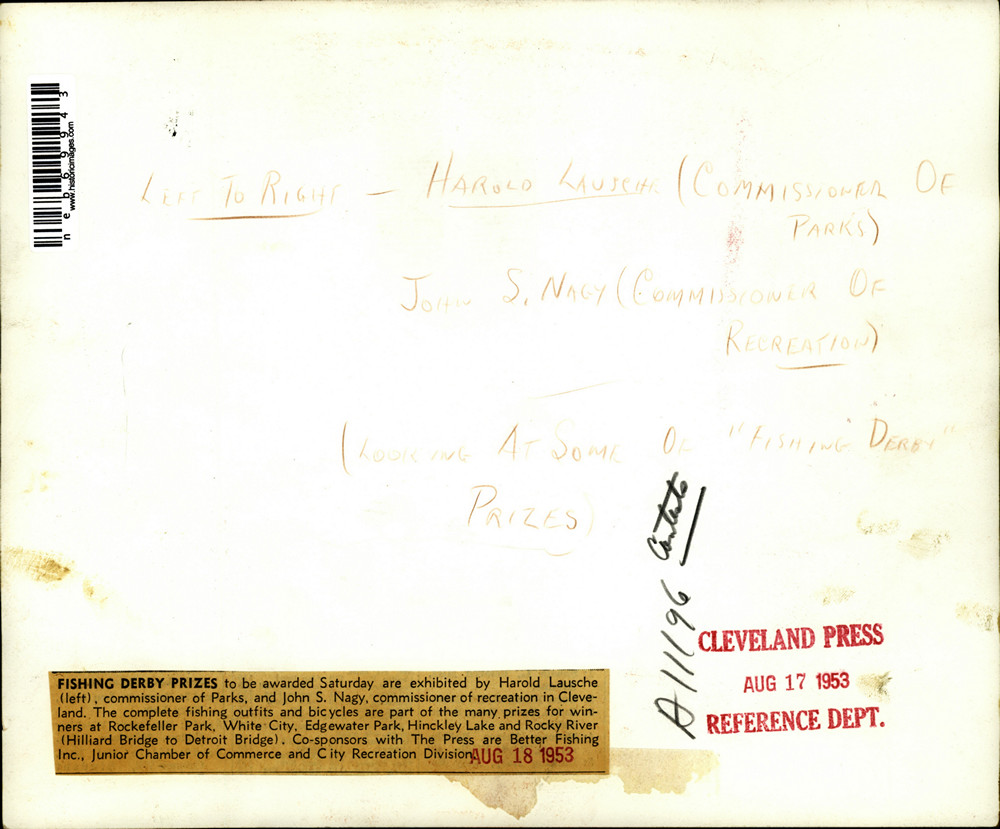 neb69943
www.historicimages.com
LEFT TO RIGHT — HAROLD LAUSCHE (COMMISSIONER OF
PARKS)
JOHN S. NAGY (COMMISSIONER OF
RECREATION)
(LOOKING AT SOME OF "FISHING DERBY"
PRIZES)
A11196 Contests
CLEVELAND PRESS
AUG 17 1953
REFERENCE DEPT.
FISHING DERBY PRIZES to be awarded Saturday are exhibited by Harold Lausche
(left), commissioner of Parks, and John S. Nagy, commissioner of recreation in Cleve-
land. The complete fishing outfits and bicycles are part of the many prizes for win-
ners at Rockefeller Park, White City, Edgewater Park, Hinckley Lake and Rocky River
(Hilliard Bridge to Detroit Bridge). Co-sponsors with The Press are Better Fishing
Inc., Junior Chamber of Commerce and City Recreation Division AUG 18 1953